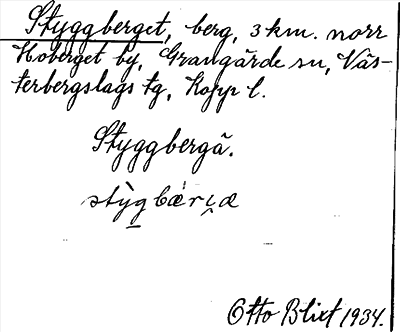 Styggberget, berg, 3 km. norr
Hoberget by, Grangärde sn, Väs-
terbergslags tg, Kopp l.
Styggbergä.
Otto Blixt 1934.